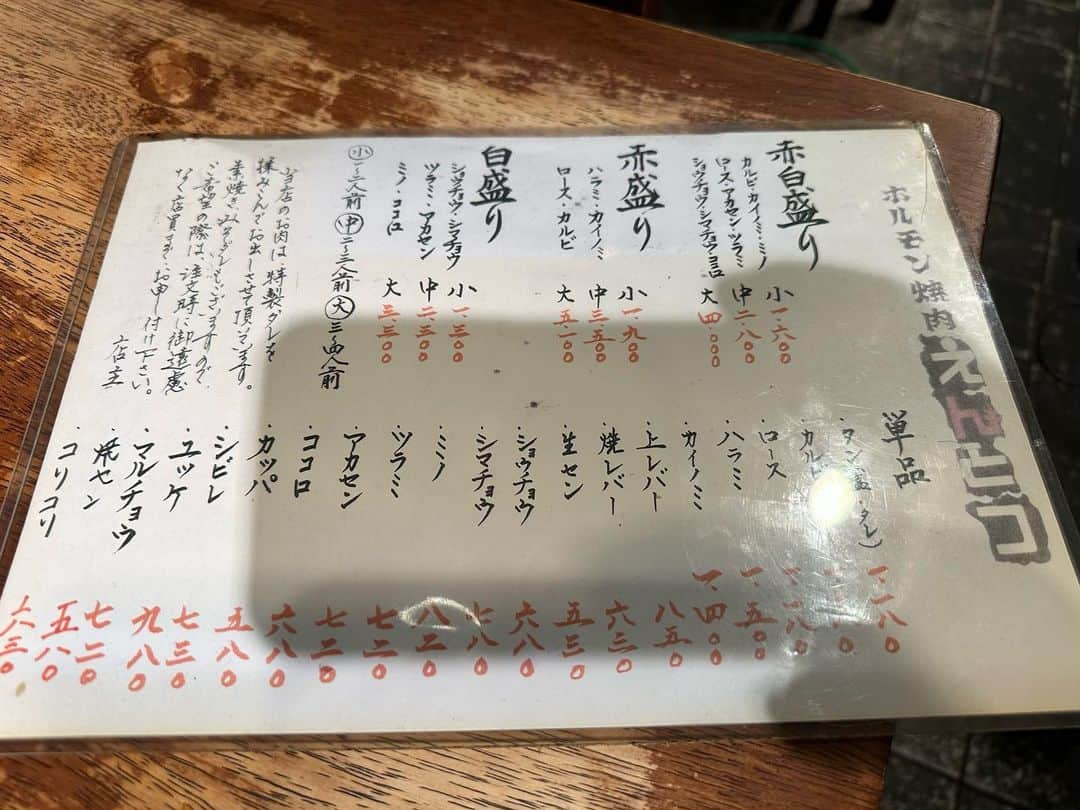 ホルモン焼肉・えんとつ
赤白盛り
カルビ・カイノミ・ミノ
ロース・アカセン・ツラミ
ショウチョウ・シマチョウ・ココロ
小 一・六〇〇
中 二・八〇〇
大 四・〇〇〇
赤盛り
ハラミ・カイノミ
ロース・カルビ
小 一・九〇〇
中 三・五〇〇
大 五・一〇〇
白盛り
ショウチョウ・シマチョウ
ツラミ・アカセン
ミノ・ココロ
小 一・三〇〇
中 二・三〇〇
大 三・三〇〇
小 一〜二人前 中 二〜三人前 大 三〜四人前
当店のお肉は特製ダレを
揉みこんでお出しさせて頂いてます。
素焼き、みそダレもございますので
ご希望の際は、注文時に御遠慮
なく店員までお申し付け下さい。
店主
単品
・タン(塩・タレ)
・カルビ
・ロース
・ハラミ 一・五〇〇
・カイノミ 一・四〇〇
・上レバー 八五〇
・焼レバー 六三〇
・生セン 五三〇
・ショウチョウ 六八〇
・シマチョウ 七八〇
・ミノ 八二〇
・ツラミ 七三〇
・アカセン 七二〇
・ココロ 六八〇
・カッパ 五八〇
・シビレ 七三〇
・ユッケ 九八〇
・マルチョウ 七二〇
・焼セン 五八〇
・コリコリ 六三〇